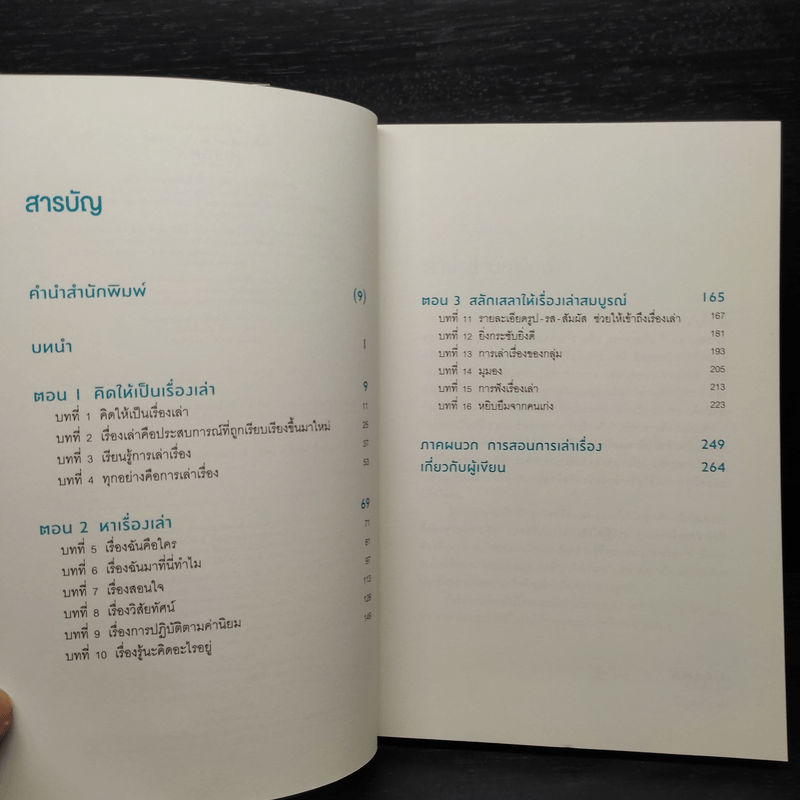 สารบัญ
คำนำสำนักพิมพ์ (9)
บทนำ 1
ตอน 1 คิดให้เป็นเรื่องเล่า 9
บทที่ 1 คิดให้เป็นเรื่องเล่า 11
บทที่ 2 เรื่องเล่าคือประสบการณ์ที่ถูกเรียบเรียงขึ้นมาใหม่ 25
บทที่ 3 เรียนรู้การเล่าเรื่อง 37
บทที่ 4 ทุกอย่างคือการเล่าเรื่อง 53
ตอน 2 หาเรื่องเล่า 69
บทที่ 5 เรื่องฉันคือใคร 71
บทที่ 6 เรื่องฉันมาที่นี่ทำไม 81
บทที่ 7 เรื่องสอนใจ 97
บทที่ 8 เรื่องวิสัยทัศน์ 113
บทที่ 9 เรื่องการปฏิบัติตามค่านิยม
บทที่ 10 เรื่องรู้นะคิดอะไรอยู่
ตอน 3 สลักเสลาให้เรื่องเล่าสมบูรณ์ 165
บทที่ 11 รายละเอียดรูป-รส-สัมผัส ช่วยให้เข้าถึงเรื่องเล่า 167
บทที่ 12 ยิ่งกระชับยิ่งดี 181
บทที่ 13 การเล่าเรื่องของกลุ่ม 193
บทที่ 14 มุมอง 205
บทที่ 15 การฟังเรื่องเล่า 213
บทที่ 16 หยิบยืมจากคนเก่ง 223
ภาคผนวก การสอนการเล่าเรื่อง 249
เกี่ยวกับผู้เขียน 264